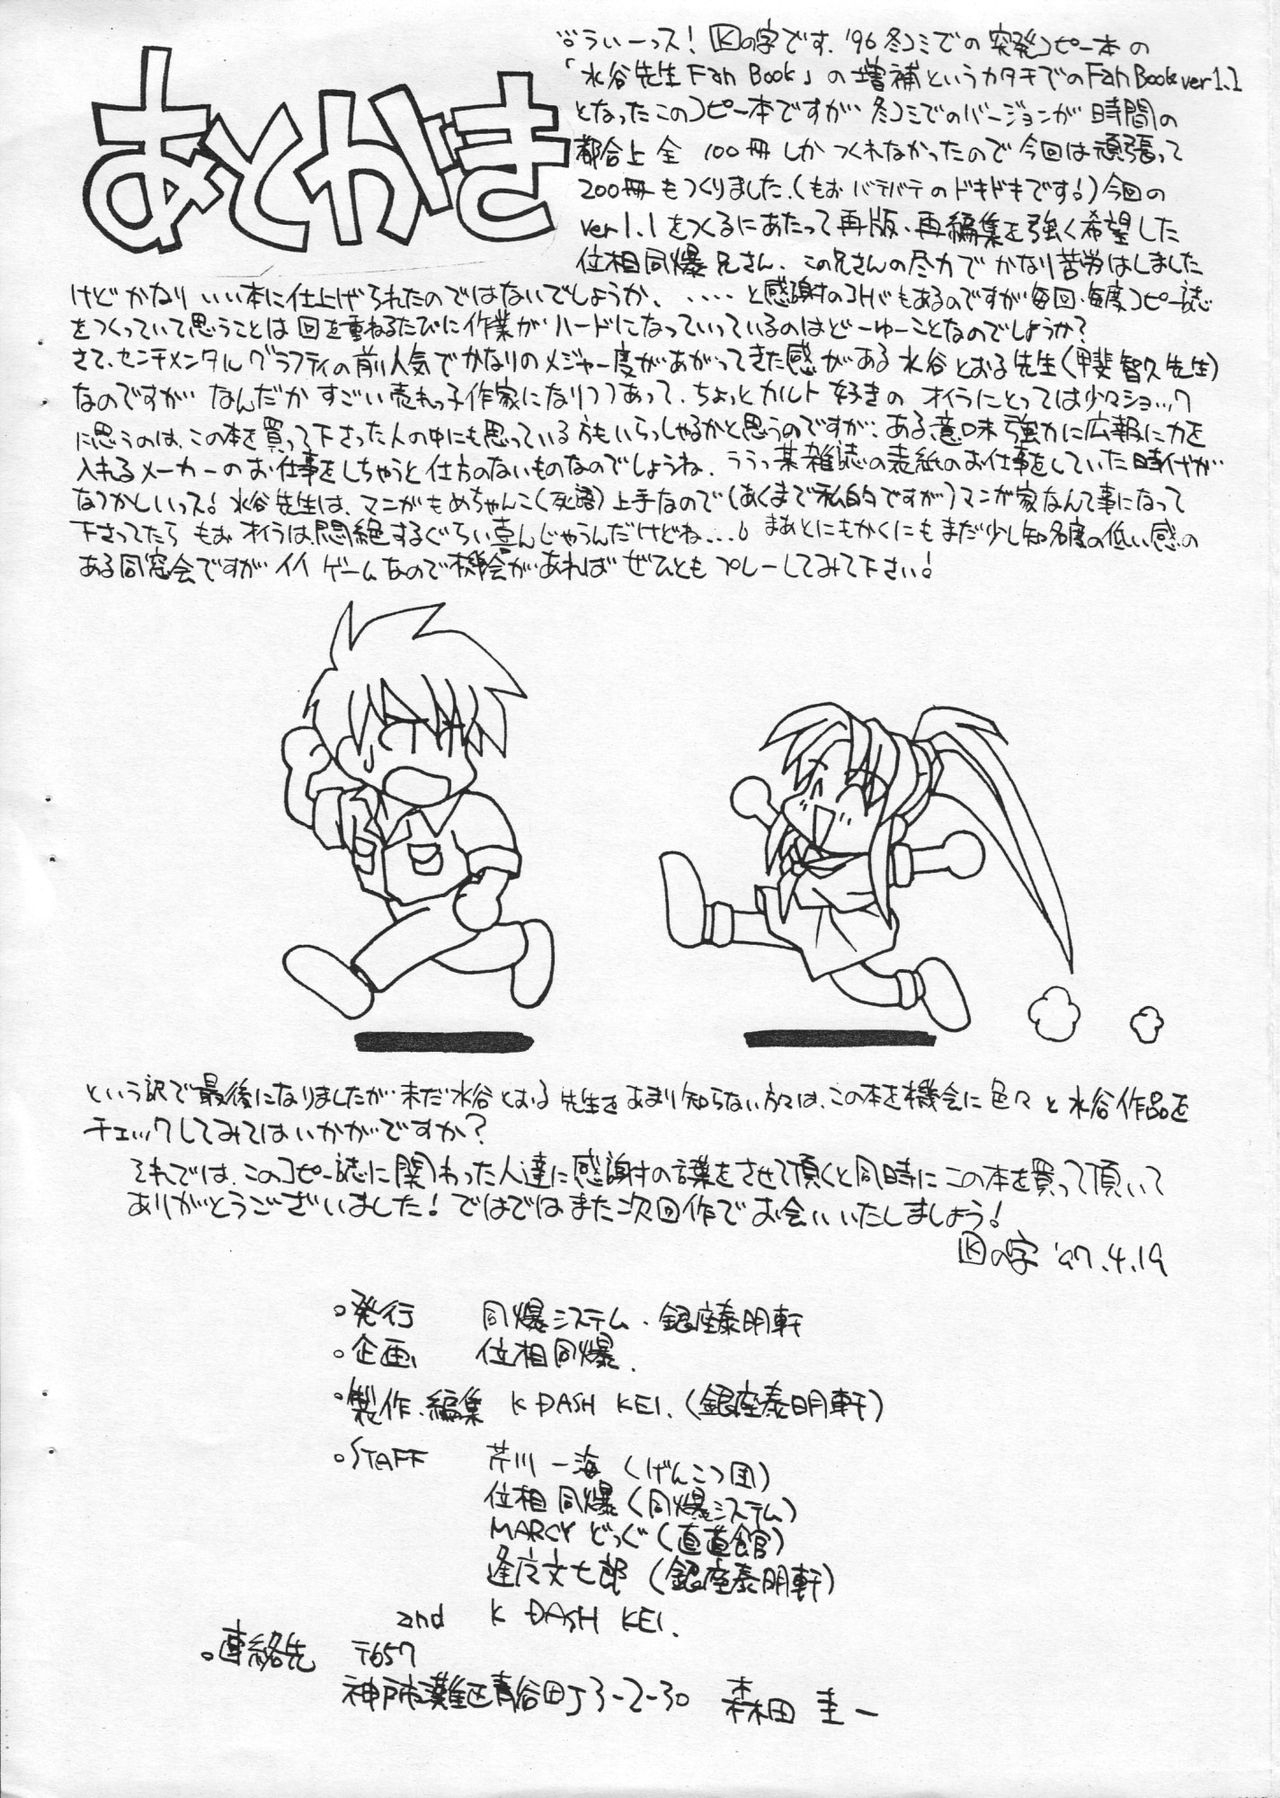 あとがき
うぃーっス！Kの字です、'96冬コミでの突発コピー本の
「水谷先生Fan Book」の増補というカタチでのFan Book ver1.1
となったこのコピー本ですが冬コミでのバージョンが時間の
都合上全100冊しかつくれなかったので今回は頑張って
200冊もつくりました、(もぉバテバテのドキドキです！)今回の
ver1.1をつくるにあたって再版、再編集を強く希望した
位相同爆兄さん、この兄さんの尽力でかなり苦労はしました
けどかなりいい本に仕上げられたのではないでしょうか、・・・・と感謝のコトバもあるのですが毎回、毎度コピー誌
をつくっていて思うことは回を重ねるたびに作業がハードになっていっているのはどーゆーことなのでしょうか？
さて、センチメンタルグラフティの前人気でかなりのメジャー度があがってきた感がある水谷とおる先生(甲斐智久先生)
なのですがなんだかすごい売れっ子作家になりつつあって、ちょっとカルト好きのオイラにとっては少々ショック
に思うのは、この本を買って下さった人の中にも思っている方もいらっしゃるかと思うのですが、ある意味強力に広報に力を
入れるメーカーのお仕事をしちゃうと仕方のないものなのでしょうね、ううっ某雑誌の表紙のお仕事をしていた時代が
なつかしいっス！水谷先生は、マンガもめちゃんこ(死語)上手なので(あくまで私的ですが)マンガ家なんて事になって
下さってたらもぉオイラは悶絶するぐらい喜んじゃうんだけどね...。まあとにもかくにもまだ少し知名度の低い感の
ある同窓会ですがイイゲームなので機会があればぜひともプレーしてみて下さい！
という訳で最後になりましたが未だ水谷とおる先生をあまり知らない方々は、この本を機会に色々と水谷作品を
チェックしてみてはいかがですか？
それでは、このコピー誌に関わった人達に感謝の言葉をさせて頂くと同時にこの本を買って頂いて
ありがとうございました！ではではまた次回作でお会いいたしましょう！
Kの字 '97.4.19
。発行 同爆システム・銀座泰明軒
。企画 位相同爆.
。製作、編集 K DASH KEI.(銀座泰明軒)
。STAFF 芹川一海(げんこつ団)
位相同爆(同爆システム)
MARCY どっぐ(直道館)
逢広文七郎(銀座泰明軒)
and K DASH KEI.
。連絡先 〒657
神戸市灘区青谷町3-2-30 森田圭一